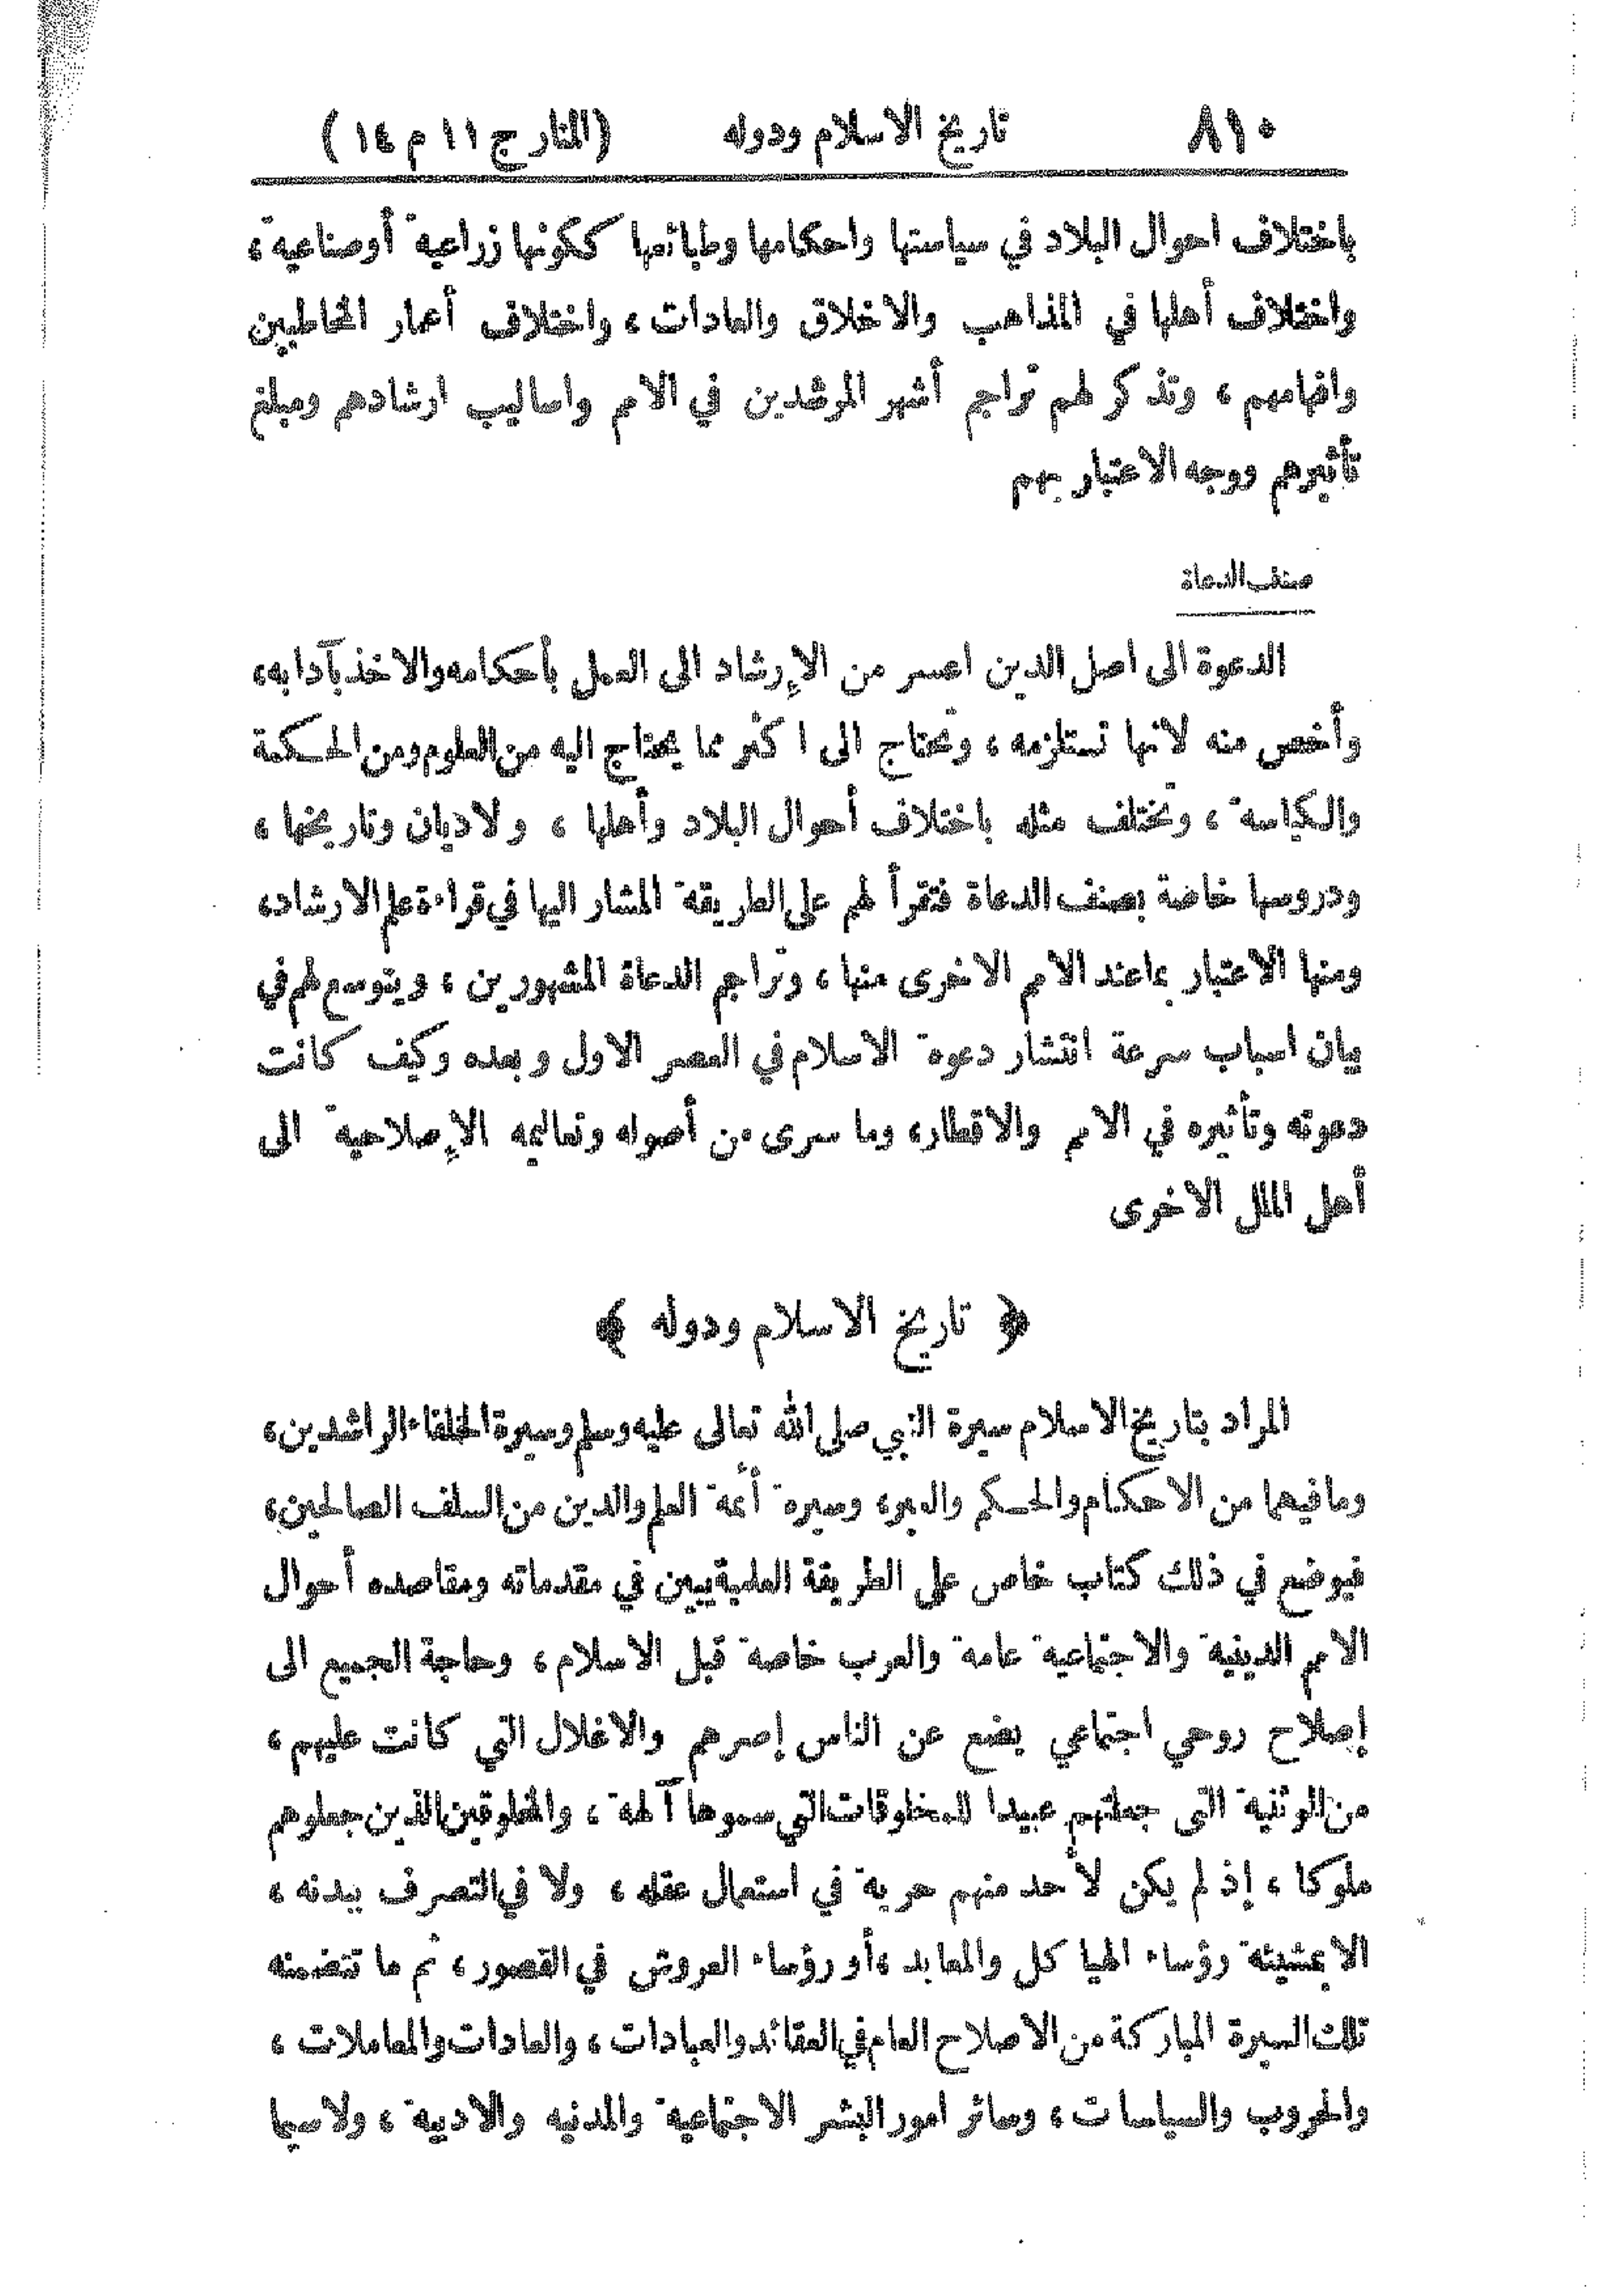 ٨١٠ تاريخ الاسلام ودوله (المنار ج ١١ م ١٤)
باختلاف احوال البلاد في سياستها واحكامها وطبائعها ككونها زراعية أو صناعية ،
واختلاف أهلها في المذاهب والاخلاق والعادات ، واختلاف أعمار المخاطبين
وافهامهم ، وتذكر لهم تراجم أشهر المرشدين في الامم واساليب ارشادهم ومبلغ
تأثيرهم ووجه الاعتبار بهم
صنف الدعاة
الدعوة الى اصل الدين اعسر من الإرشاد الى العمل بأحكامه والاخذ بآدابه ،
وأخص منه لانها تستلزمه ، وتحتاج الى اكثر مما يحتاج اليه من العلوم ومن الحكمة
والكياسة ، وتختلف مثله باختلاف أحوال البلاد وأهلها ، ولاديان وتاريخها ،
ودروسها خاصة بصنف الدعاة فتقرأ لهم على الطريقة المشار اليها في قراءة علم الارشاد ،
ومنها الاعتبار بما عند الامم الاخرى منها ، وتراجم الدعاة المشهورين ، ويتوسع لهم في
بيان اسباب سرعة انتشار دعوة الاسلام في العصر الاول وبعده وكيف كانت
دعوته وتأثيره في الامم والاقطار ، وما سرى من أصوله وتعاليمه الإصلاحية الى
أهل الملل الاخرى
﴿ تاريخ الاسلام ودوله ﴾
المراد بتاريخ الاسلام سيرة النبي صلى الله تعالى عليه وسلم وسيرة الخلفاء الراشدين ،
وما فيهما من الاحكام والحكم والعبر ، وسيرة أئمة العلم والدين من السلف الصالحين ،
فيوضع في ذلك كتاب خاص على الطريقة العلمية يبين في مقدماته ومقاصده أحوال
الامم الدينية والاجتماعية عامة والعرب خاصة قبل الاسلام ، وحاجة الجميع الى
إصلاح روحي اجتماعي يضع عن الناس إصرهم والاغلال التي كانت عليهم ،
من الوثنية التى جعلتهم عبيدا للمخلوقات التي سموها آلهة ، والمخلوقين الذين جعلوهم
ملوكا ، إذ لم يكن لأحد منهم حرية في استعمال عقله ، ولا في التصرف ببدنه ،
الا بمشيئة رؤساء الهياكل والمعابد ، أو رؤساء العروش في القصور ، ثم ما تتضمنه
تلك السيرة المباركة من الاصلاح العام في العقائد والعبادات ، والعادات والمعاملات ،
والحروب والسياسات ، وسائر امور البشر الاجتماعية والمدنيه والادبية ، ولا سيما